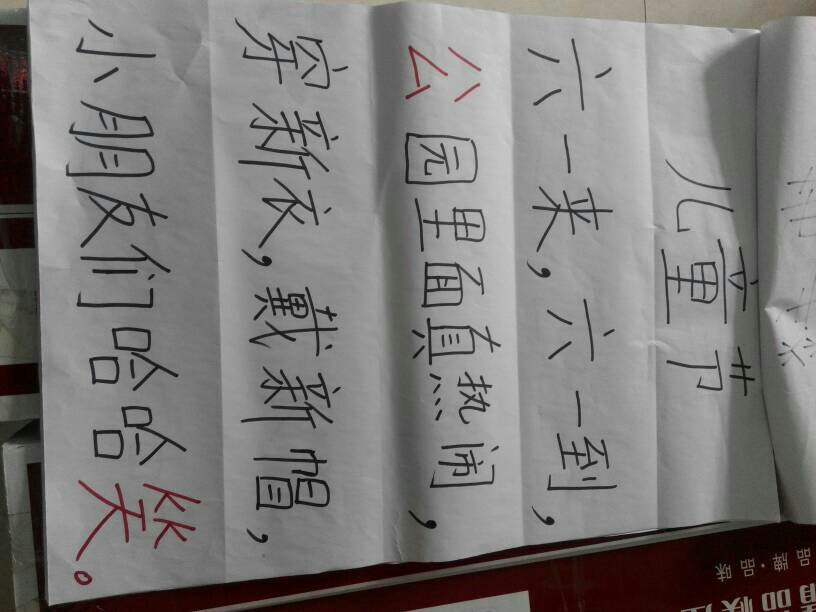 儿童节
六一来，六一到，
公园里面真热闹，
穿新衣，戴新帽，
小朋友们哈哈笑。
品牌·品味